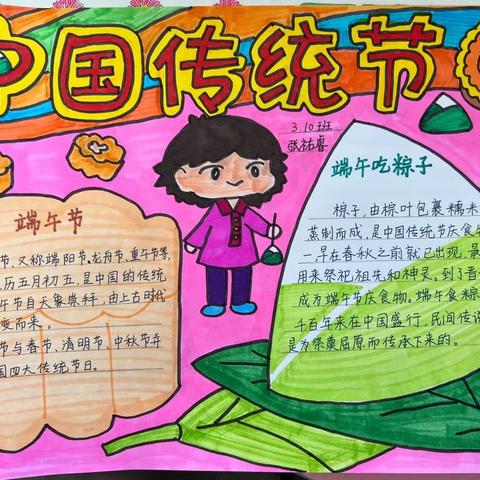 中国传统节
3.10班
张祐睿
端午节
节，又称端阳节、龙舟节、重午节等，
历五月初五，是中国的传统
午节自天象崇拜，由上古时代
变而来。
节与春节、清明节、中秋节并
国四大传统节日。
端午吃粽子
粽子，由粽叶包裹糯米
蒸制而成，是中国传统节庆食物
一，早在春秋之前就已出现，最
用来祭祀祖先和神灵。到了晋
成为端午节庆食物。端午食粽
千百年来在中国盛行，民间传说
是为祭奠屈原而传承下来的。